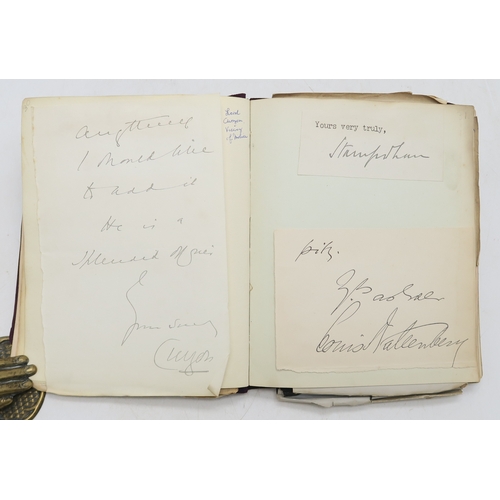 anything
I should like
to add it
He is a
splendid officer
Curzon
Lord
Curzon
Viceroy
of India
Yours very truly,
Stamfordham
Louis Battenberg